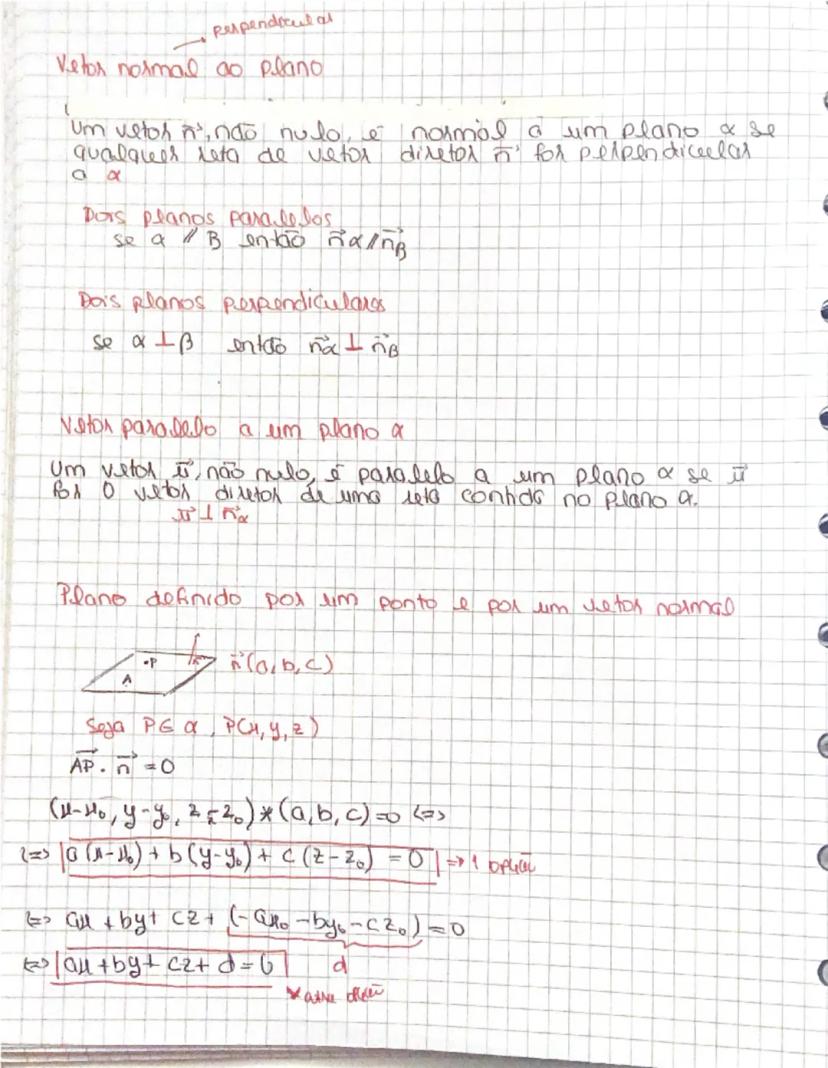 perpendicular
Vetor normal ao plano
Um vetor n⃗, não nulo, é normal a um plano α se
qualquer reta de vetor diretor n⃗ for perpendicular
a α
Dois planos paralelos
se α // β então n⃗α // n⃗β
Dois planos perpendiculares
se α ⊥ β então n⃗α ⊥ n⃗β
Vetor paralelo a um plano α
Um vetor u⃗, não nulo, é paralelo a um plano α se u⃗
for o vetor diretor de uma reta contida no plano α.
u⃗ ⊥ n⃗α
Plano definido por um ponto e por um vetor normal
•P n⃗(a,b,c)
A
Seja P∈ α, P(x,y,z)
AP⃗ . n⃗ = 0
(x-x₀, y-y₀, z-z₀)*(a,b,c)=0 <=>
<=> a(x-x₀) + b(y-y₀) + c(z-z₀) = 0 => 1 opção
<=> ax + by + cz + (-ax₀ -by₀ -cz₀) = 0
<=> ax + by + cz + d = 0 d